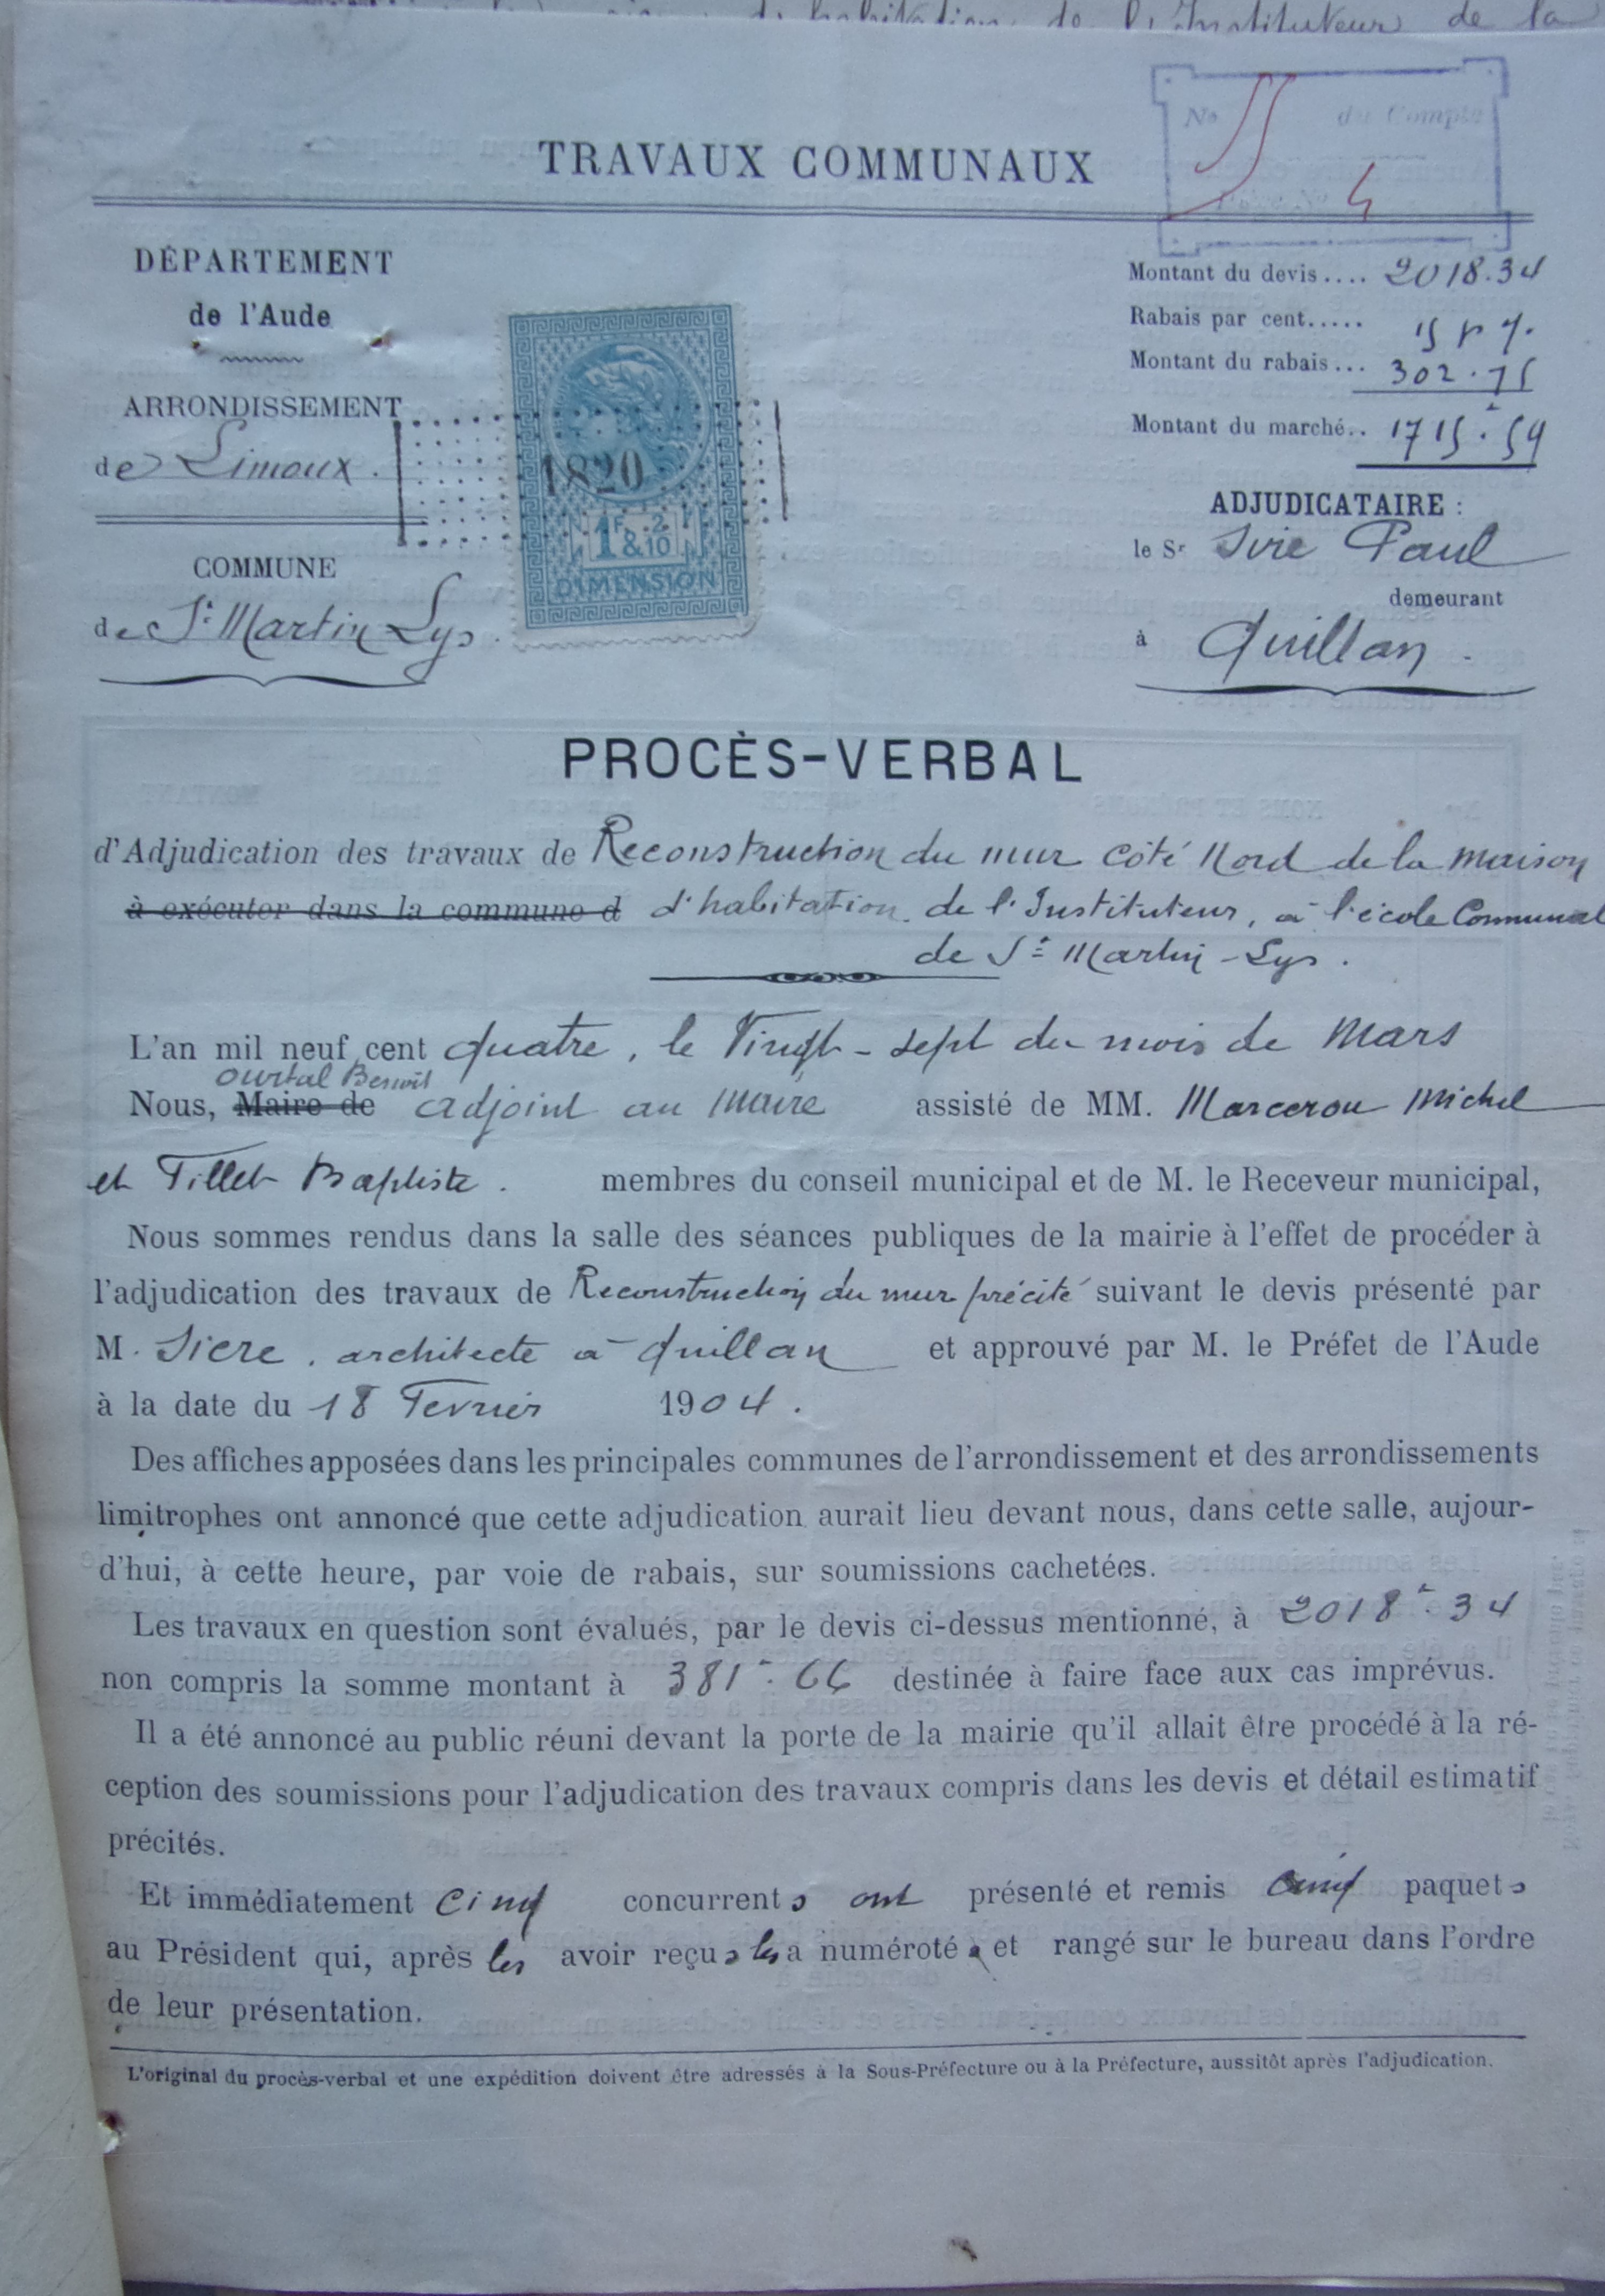 d'habitation de l'Instituteur de la
No du Compte
4
TRAVAUX COMMUNAUX
DÉPARTEMENT
de l'Aude
ARRONDISSEMENT
de Limoux.
COMMUNE
de St Martin Lys.
1820
1F. 2
& 10
DIMENSION
Montant du devis.... 2018.34
Rabais par cent..... 15 p %
Montant du rabais... 302.75
Montant du marché.. 1715.59
ADJUDICATAIRE :
le Sr Sire Paul
demeurant
à Quillan.
PROCÈS-VERBAL
d'Adjudication des travaux de Reconstruction du mur côté Nord de la maison
à exécuter dans la commune d d'habitation de l'Instituteur, à l'école Communal
de St Martin-Lys.
L'an mil neuf cent quatre, le Vingt-sept du mois de Mars
ourtal Benoit
Nous, Maire de adjoint au Maire assisté de MM. Marcerou Michel
et Tillet Baptiste. membres du conseil municipal et de M. le Receveur municipal,
Nous sommes rendus dans la salle des séances publiques de la mairie à l'effet de procéder à
l'adjudication des travaux de Reconstruction du mur précité suivant le devis présenté par
M. Sicre, architecte à Quillan et approuvé par M. le Préfet de l'Aude
à la date du 18 Fevrier 1904.
Des affiches apposées dans les principales communes de l'arrondissement et des arrondissements
limitrophes ont annoncé que cette adjudication aurait lieu devant nous, dans cette salle, aujour-
d'hui, à cette heure, par voie de rabais, sur soumissions cachetées.
Les travaux en question sont évalués, par le devis ci-dessus mentionné, à 2018f.34
non compris la somme montant à 381f.66 destinée à faire face aux cas imprévus.
Il a été annoncé au public réuni devant la porte de la mairie qu'il allait être procédé à la ré-
ception des soumissions pour l'adjudication des travaux compris dans les devis et détail estimatif
précités.
Et immédiatement cinq concurrents ont présenté et remis cinq paquets
au Président qui, après les avoir reçus les a numérotés et rangé sur le bureau dans l'ordre
de leur présentation.
L'original du procès-verbal et une expédition doivent être adressés à la Sous-Préfecture ou à la Préfecture, aussitôt après l'adjudication.